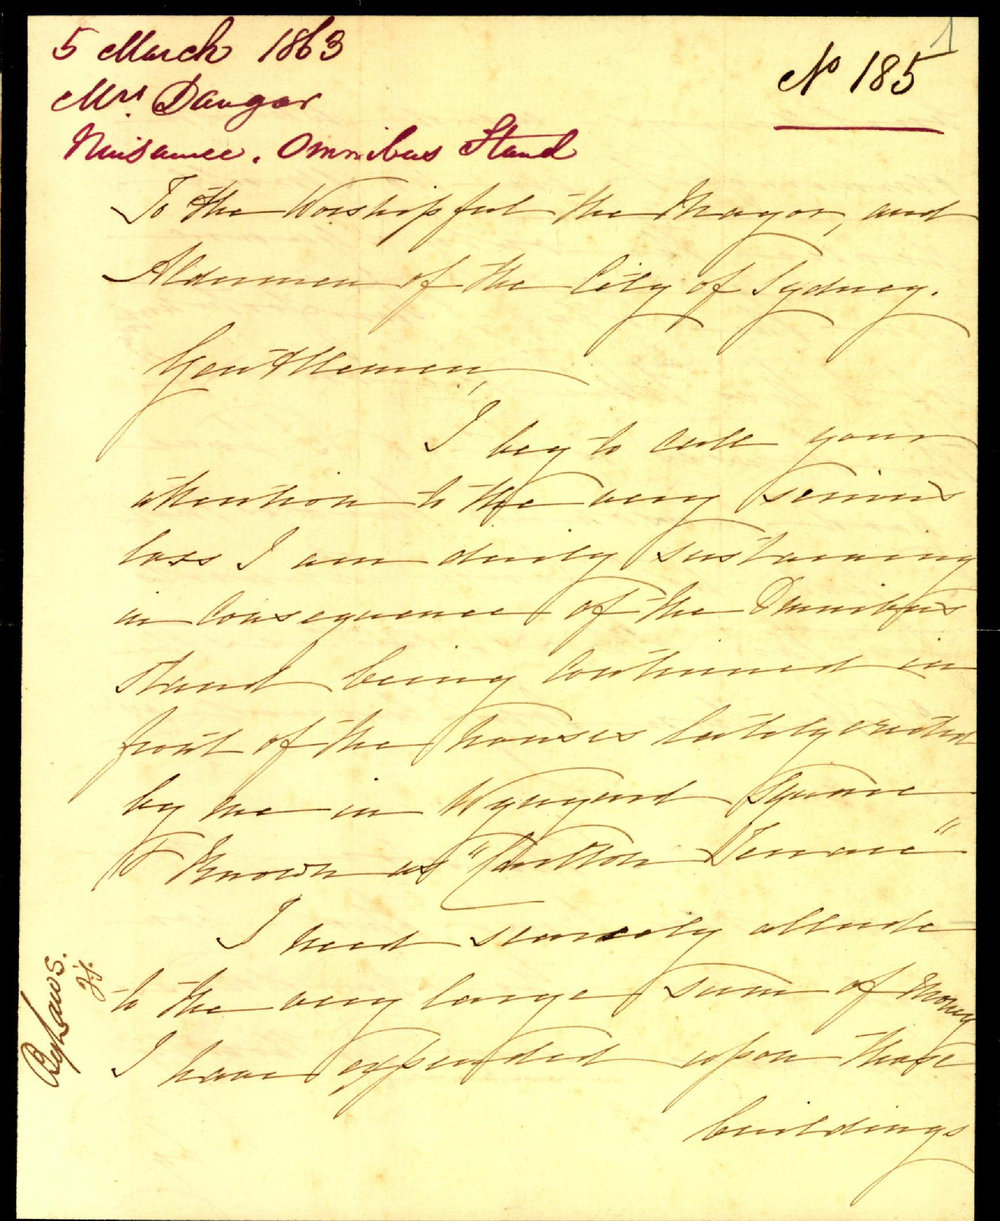 1
5 March 1863
Mrs Dangar
Nuisance. Omnibus Stand
No 185
To the Worshipful the Mayor, and
Aldermen of the City of Sydney.
Gentlemen,
I beg to call your
attention to the very serious
loss I am daily sustaining
in consequence of the Omnibus
stand being continued in
front of the houses lately erected
by me in Wynyard Square
& known as "Carlton Terrace"
I need scarcely allude
to the very large sum of money
I have expended upon those
buildings
ByLaws.